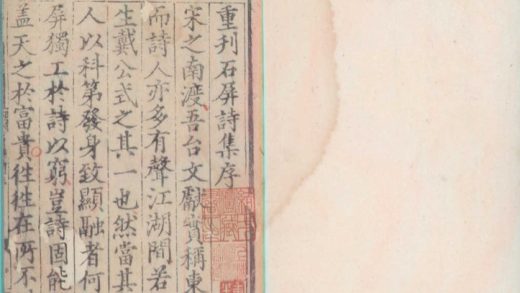 重刊石屏詩集序
宋之南渡吾台文獻實稱東
而詩人亦多有聲江湖間若
生戴公式之其一也然當其
人以科第發身致顯融者何
屏獨工於詩以窮豈詩固能
蓋天之於富貴往往在所不